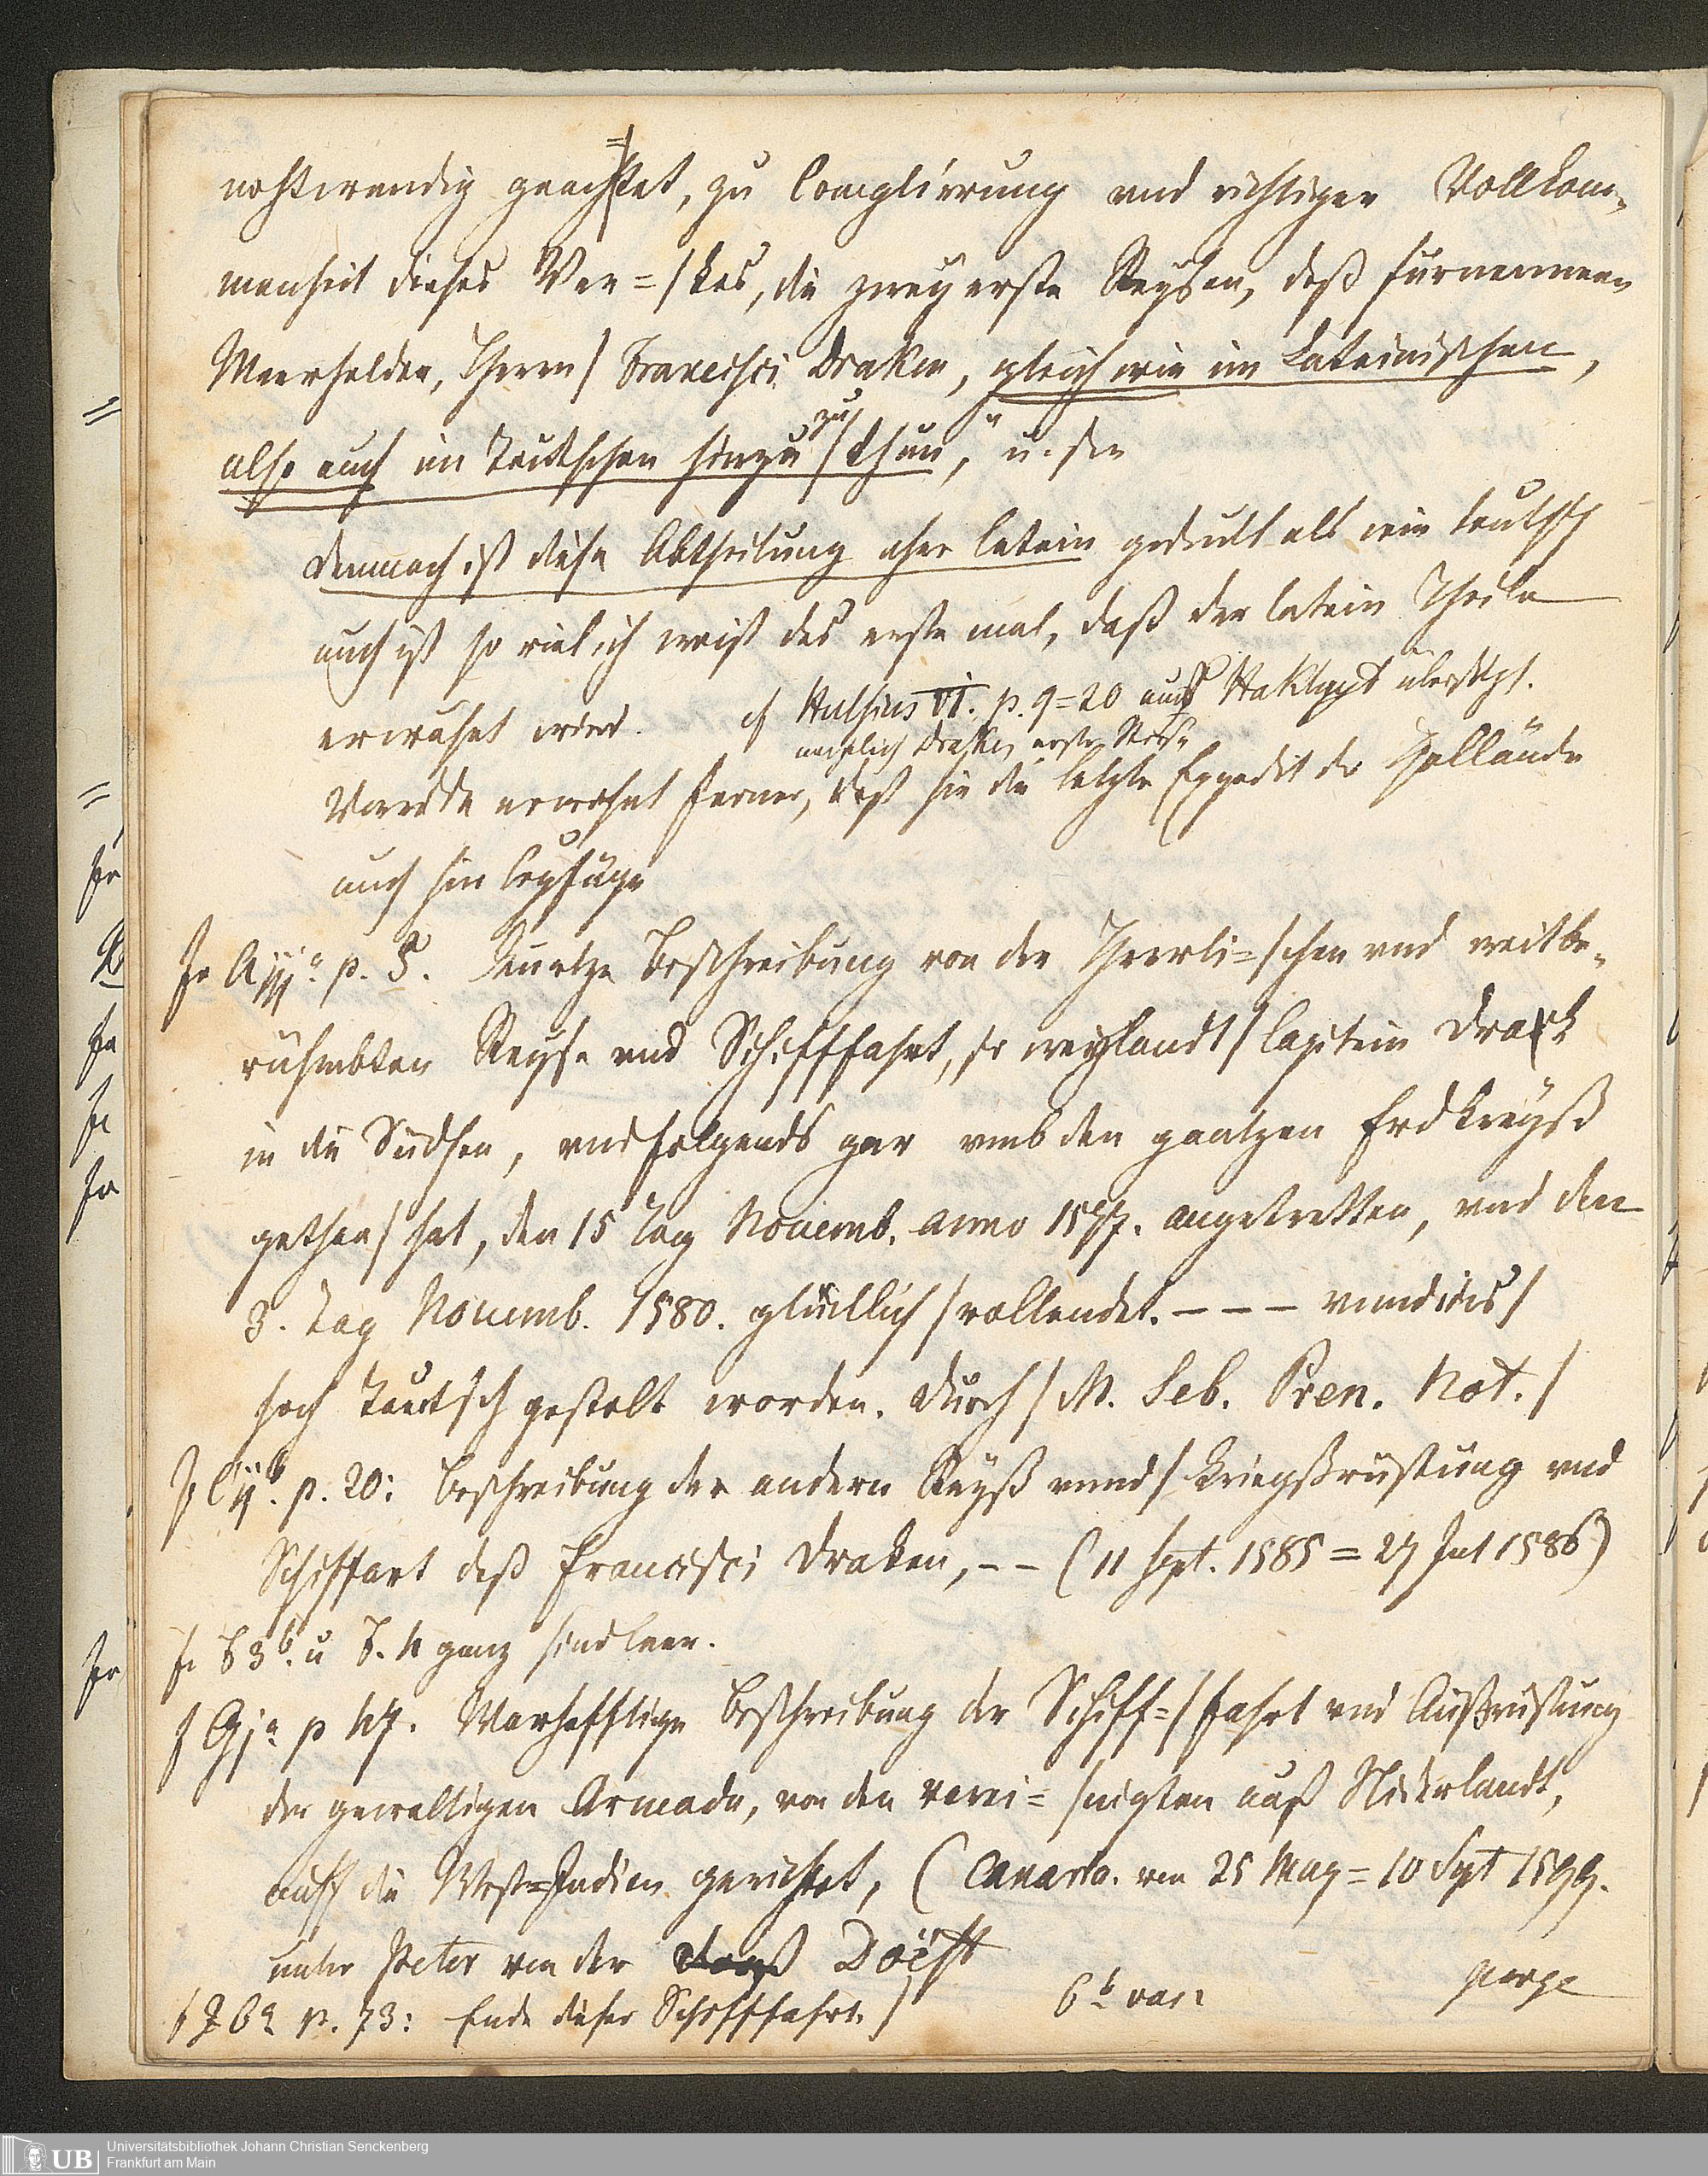 nothwendig geachtet, zu Complierung vnd richtiger Vollkom-
menheit dieses Wer=/kes, die zwey erste Reysen, deß fürnemmen
Meerhelden, Herrn/ Francisci Draken, gleich wie im Lateinischen,
also auch im Teutschen hinzu zu/thun," u.
Demnach ist diese Abtheilung eher latein gedrukt als wie teutsch
auch ist so viel ich weiß das erste mal, daß der latein Theile
erwähnt wird. cf Hulsius VI. p. 9=20 auß Hakluyt übersetzt.
nemlich Drakes erste Reise
Vorrede erwehnt ferner, daß sie die letzte Expedit der Holländer
auch hin beyfüge
fr A iij a p. 5. Kurtze Beschreibung von der Herrli=/chen vnd weitbe-
rühmbten Reyse vnd Schifffahrt, so weylandt/ Capitein Drack
in die Südsee, vnd folgends gar vmb den gantzen Erdkreyß
gethan/ hat, den 15 Tag Nouemb. anno 1577. angetretten, vnd den
3. Tag Nouemb. 1580. glücklich/ vollendet. – – –
hoch Teutsch gestalt worden. Durch/ M. Seb. Pren. Not./
f C ij b. p. 20: Beschreibung der andern Reyß vnnd/ Kriegßrüstung vnd
Schiffart deß Francisci Draken, – – (11 Sept. 1585 = 27 Jul 1586)
fr F 3 b. u F. 4 ganz sind leer.
f G j a p 47. Warhafftige Beschreibung der Schiff=/fahrt vnd Außrüstung
der gewaltigen Armada, von den verei=/nigten auß Niderlandt,
auff die West=Indien gerichtet, ( Canaria. von 25 May = 10 Sept 1599.
unter Peter von der Doëst
f 6a p. 73: Ende dieser Schifffahrt./ 6b vac:
perge
UB Universitätsbibliothek Johann Christian Senckenberg
Frankfurt am Main